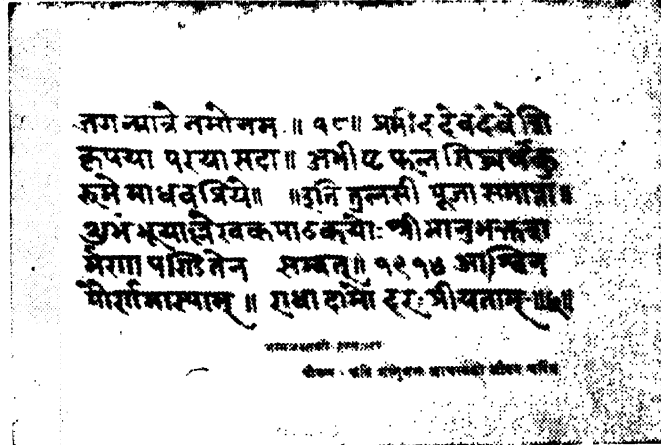 जगन्मात्रे नमोनमः ॥ १८॥ प्रसीद देवदेवेशि
कृपया परया सदा॥ अभीष्ट फल सिद्ध्यर्थं कु
रुमे माधवप्रिये॥ ॥इति तुलसी पूजा समाप्ता॥
शुभं भूयाल्लेखकपाठकयोः श्री भानुभक्तश
र्मणा पण्डितेन सम्बत्॥ १९१४ आश्विन
पौर्णामास्याम् ॥ राधा दामोदरः प्रीयताम् ॥५॥